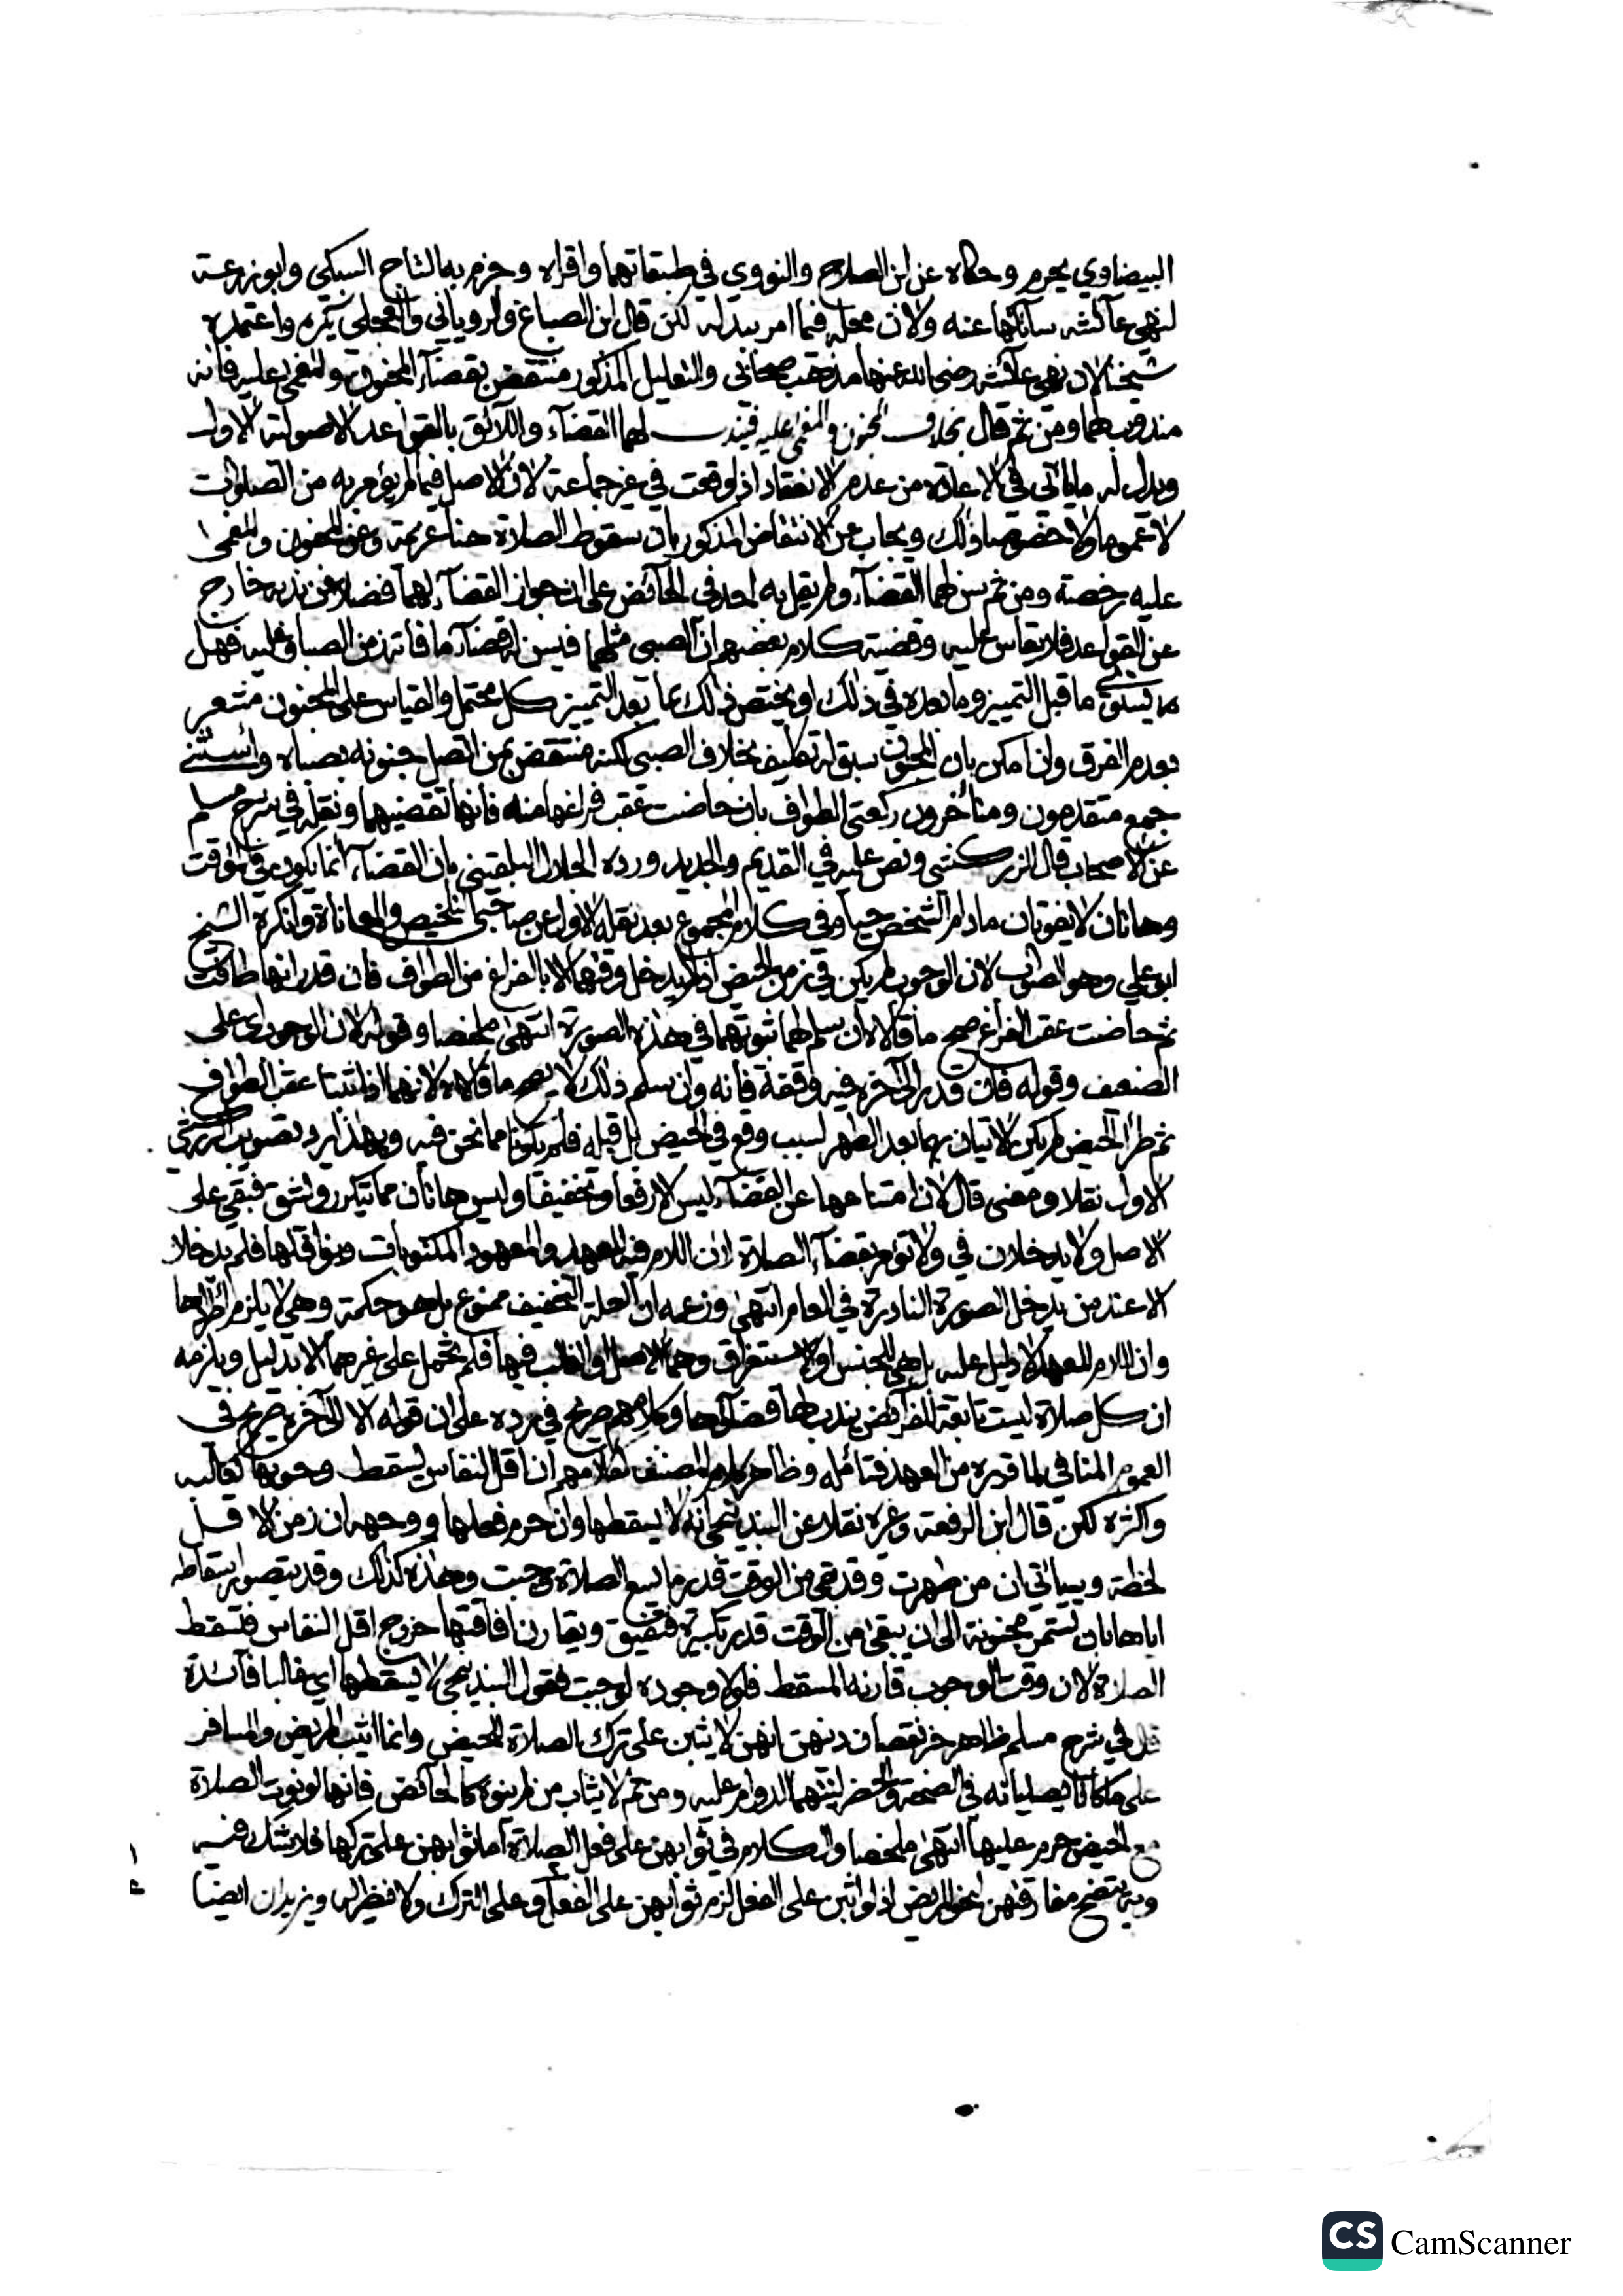 البيضاوي يحرم وحكاه عن ابن الصلاح والنووي في طبقاتهما واقراه وجزم به التاج السبكي وابو زرعة
لنهي عائشة سائلتها عنه ولان محله فيما امر ببدله لكن قال ابن الصباغ والروياني والعجلي يكره واعتمده
شيخنا لان نهي عائشة رضي الله عنها مذهب صحابي والتعليل المذكور منتقض بقضاء المجنون والمغمى عليه فانه
مندوب لهما ومن ثم قال بخلاف المجنون والمغمى عليه فيندب لهما القضاء واللائق بالقواعد الاصولية الاول
ويدل له ما ياتي في الاعادة من عدم الانعقاد اذا وقعت في غير جماعة لان الاصل فيما لم يؤمر به من الصلوات
لا عموما ولا خصوصا ذلك ويجاب عن الانتقاض المذكور بان سقوط الصلاة هنا عزيمة وعن المجنون والمغمى
عليه رخصة ومن ثم سن لهما القضاء ولم يقل به احد في الحائض على ان جواز القضاء لهما فضلا عن ندبه خارج
عن القواعد فلا يقاس عليه وقضية كلام بعضهم ان الصبي مثلهما فيسن له قضاء ما فاته زمن الصبا وعليه فهل
يستوي ما قبل التمييز وما بعده في ذلك او يختص ذلك بما بعد التمييز كل محتمل والقياس على المجنون مشعر
بعدم الفرق وان امكن بان المجنون سبق له تكليف بخلاف الصبي لكنه منتقض بمن اتصل جنونه بصباه واستثنى
جمع متقدمون ومتأخرون ركعتي الطواف بان حاضت عقب فراغها منه فانها تقضيهما ونقله في شرح مسلم
عن الاصحاب قال الزركشي ونص عليه في القديم والجديد ورده الجلال البلقيني بان القضاء انما يكون في المؤقت
وهاتان لا يفوتان مادام الشخص حيا وفي كلام المجموع بعد نقله الاول عن صاحبي التلخيص والمعاياة وانكره الشيخ
ابو علي وهو الصواب لان الوجوب لم يكن في زمن الحيض اذ لم يدخل وقتهما الا بالفراغ من الطواف فان قدر انها طافت
ثم حاضت عقب الفراغ صح ما قالاه ان سلم لهما ثبوتهما في هذه الصورة انتهى ملخصا وقوله لان الوجوب اي على
الضعيف وقوله فان قدر الى آخره فيه وقفة فانه وان سلم ذلك لا يصح ما قالاه لانهما اذا ثبتا عقب الطواف
ثم طرأ الحيض لم يكن الاتيان بهما بعد الطهر لسبب وقع في الحيض بل قبله فلم يكونا مما نحن فيه وبهذا يرد تصويب الزركشي
الاول نقلا ومعنى قال لان امتناعها عن القضاء ليس الا رفعا وتخفيفا وليس هاتان مما يتكرر ولا يشق فبقي على
الاصل ولا يدخلان في ولا تؤمر بقضاء الصلاة لان اللام فيه للعهد والمعهود المكتوبات ونوافلها فلم يدخلا
الا عند من يدخل الصورة النادرة في العام انتهى وزعمه ان العلة التخفيف ممنوع بل هو حكمة وهي لا يلزم اطرادها
وان اللام للعهد لا دليل عليه بل هي للجنس او الاستغراق وهما الاصل او الغالب فيها فلم تحمل على غيرهما الا بدليل ويلزمه
ان كل صلاة ليست تابعة للفرائض يندب لها قضاؤها وكلامهم صريح في رده على ان قوله الا الى آخره صريح في
العموم المنافي لما قرره من العهد فتأمله وظاهر كلام المصنف كغيره ان اقل النفاس يسقط وجوبها كغالبه
واكثره لكن قال ابن الرفعة وغيره نقلا عن البندنيجي انه لا يسقطها وان حرم فعلها ووجهه ان زمن الاقل
لحظة وسيأتي ان من طهرت وقد بقي من الوقت قدر ما يسع الصلاة وجبت وهذه كذلك وقد يتصور اسقاطه
اياها بان تستمر مجنونة الى ان يبقى من الوقت قدر تكبيرة فتفيق ويقارن افاقتها خروج اقل النفاس فتسقط
الصلاة لان وقت الوجوب قارنه المسقط فلولا وجوده لوجبت فقول البندنيجي لا يسقطها اي غالبا فائدة
قال في شرح مسلم ظاهر خبر نقصان دينهن انهن لا يثبن على ترك الصلاة للحيض وانما اثيب المريض والمسافر
على ما كانا يصليانه في الصحة والحضر لنيتهما الدوام عليه ومن ثم لا يثاب من لم ينوه كالحائض فانها لو نوت الصلاة
مع الحيض حرم عليها انتهى ملخصا والكلام في ثوابهن على فعل الصلاة اما ثوابهن على تركها فلا شك فيه
وبه يتضح مفارقتهن لنحو المريض اذ لو اثبن على الفعل لزم ثوابهن على الفعل وعلى الترك ولا نظير له ويزيدان ايضا
CS CamScanner